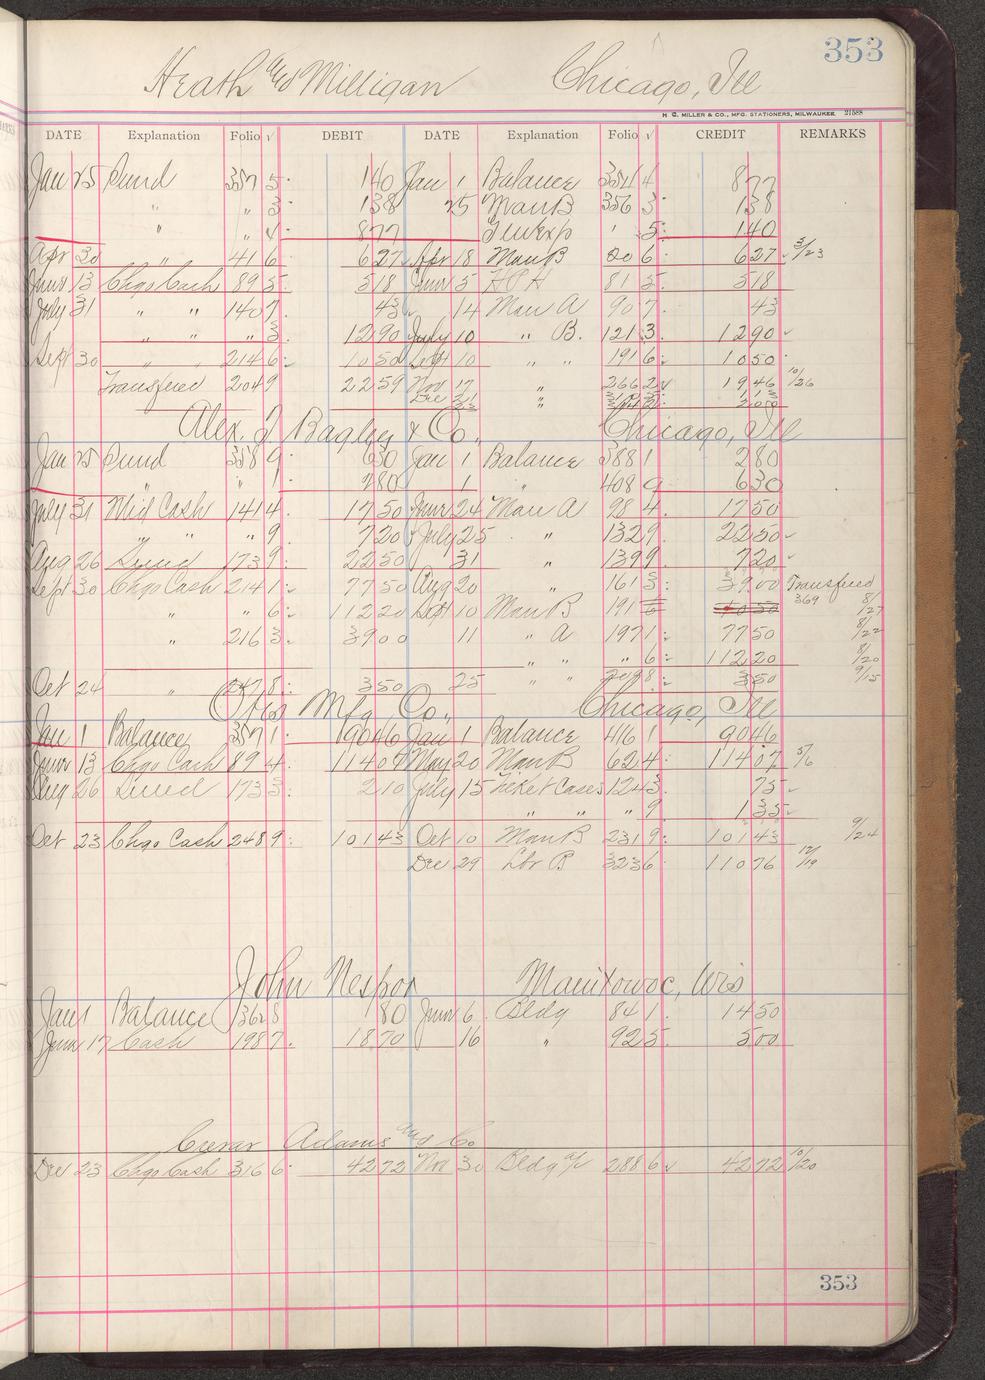 353
Heath and Milligan Chicago, Ill
H. G. MILLER & CO., MFG. STATIONERS, MILWAUKEE. 21588
DATE Explanation Folio √ DEBIT DATE Explanation Folio √ CREDIT REMARKS
Jan 25 Sund 357 5 140 Jan 1 Balance 354 4 877
" " 3 138 25 Man B 356 3 138
" " 4 877 5 140
Apr 30 " 41 6 627 Apr 18 Man B 6 627 3/23
June 13 Chgo Cash 89 5 518 June 5 H P H 81 5 518
July 31 " " 140 7 43 14 Man A 90 7 43
" " " 3 1290 July 10 " B. 121 3 1290
Sept 30 " " 214 6 1050 Sept 10 " " 191 6 1050
Transfered 204 9 2259 Nov 17 " 266 2 1946 10/26
Dec 21
"
Alex. J. Bagley & Co., Chicago, Ill
Jan 25 Sund 358 9 630 Jan 1 Balance 388 1 280
" " 1 280 1 " 408 9 630
July 31 Md Cash 141 4 1750 June 24 Man A 98 4 1750
" " " 9 720 July 25 " 132 9 2250
Aug 26 Sund 173 9 2250 31 " 139 9 720
Sept 30 Chgo Cash 214 1 7750 Aug 20 " 161 3 3900 Transfered
369 8/27
" " 6 11220 Sept 10 Man B 191 6 1050
" 216 3 3900 11 " A 197 1 7750 8/22
" " " 6 11220 8/20
Oct 24 " 247 8 350 25 " " 209 8 350 9/15
Otis Mfg Co., Chicago, Ill
Jan 1 Balance 357 1 9046 Jan 1 Balance 416 1 9046
June 13 Chgo Cash 89 4 11407 May 20 Man B 62 4 11407 5/6
Aug 26 Sund 173 3 210 July 15 Tickt Cases 124 3 75
" " " 9 135
Oct 23 Chgo Cash 248 9 10143 Oct 10 Man B 231 9 10143 9/24
Dec 29 Lbr B 323 6 11076 12/19
John Nespor Manitowoc, Wis
Jan 1 Balance 362 8 80 June 6 Bldg 84 1 1450
June 17 Cash 198 7 1870 16 " 92 5 500
Crerar Adams and Co
Dec 23 Chgo Cash 316 6 4272 Nov 30 Bldg a/c 288 6 4272 10/20
353